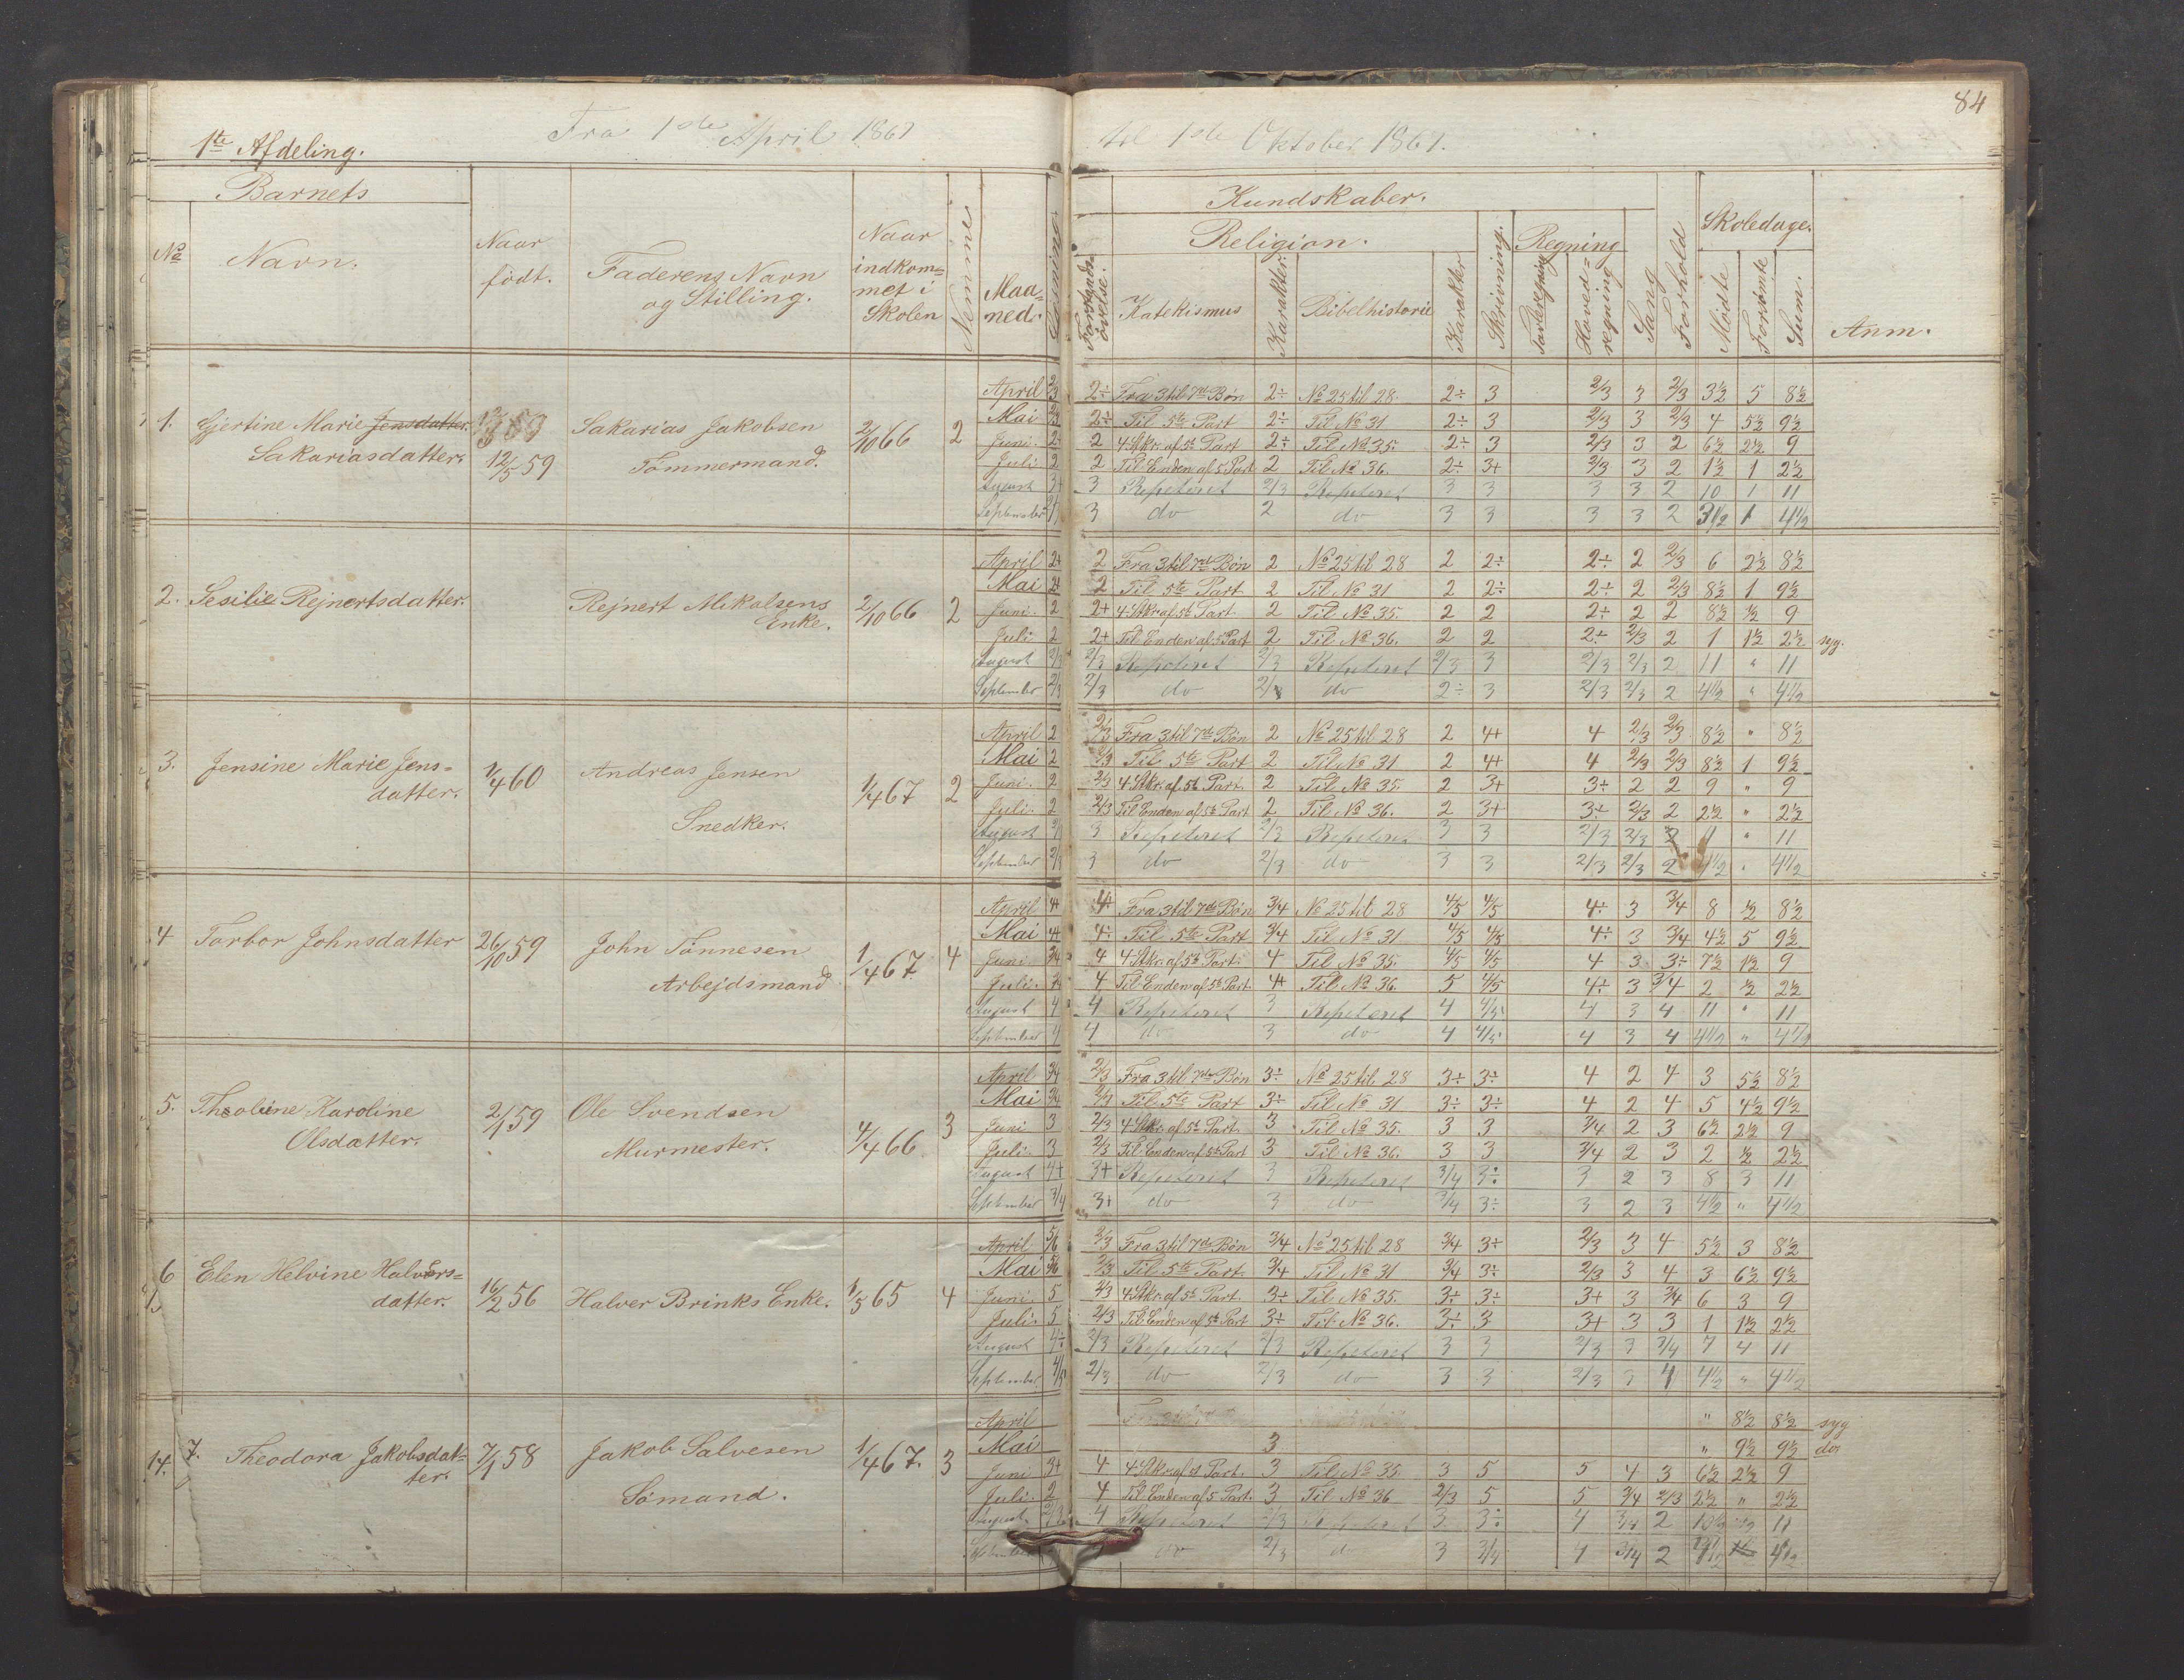 84
Fra 1ste April 1867 til 1ste Oktober 1867.
1te Afdeling.
Barnets
No
Navn.
Naar født.
Faderens Navn og Stilling.
Naar indkommet i Skolen
Nemme
Maaned.
Læsning
Forstandsøvelse.
Kundskaber.
Religion.
Katekismus
Karakter
Bibelhistorie
Karakter
Skrivning.
Regning
Tavleregning
Hovedregning
Sang
Forhold
Skoledage.
Mødte
Forsømte
Sum.
Anm.
1. Gjertine Marie Jensdatter. Sakariasdatter. 12/5 59 Sakarias Jakobsen Tømmermand. 2/10 66 2
April 2/3 2÷ Fra 3 til 7de Bøn 2÷ No 25 til 28. 2÷ 3 2/3 3 2/3 3½ 5 8½
Mai 2/3 2÷ Til 5te Part 2÷ Til No 31 2÷ 3 2/3 3 2/3 4 5½ 9½
Juni. 2 2 4 Stkr. af 5te Part 2÷ Til No 35. 2÷ 3 2/3 3 2 6½ 2½ 9
Juli 2 2 Til Enden af 5 Part 2 Til No 36. 2÷ 3+ 2/3 3 2 1½ 1 2½
August 3+ 3 Repeteret 2/3 Repeteret 3 3 3 3 2 10 1 11
September 3 do 2 do 3 3 3 3 2 3½ 1 4½
2. Sesilie Rejnertsdatter. Rejnert Mikalsens Enke. 2/10 66 2
April 2+ 2 Fra 3 til 7de Bøn 2 No 25 til 28 2 2÷ 2÷ 2 2/3 6 2½ 8½
Mai 2+ 2 Til 5te Part 2 Til No 31 2 2÷ 2÷ 2 2/3 8½ 1 9½
Juni. 2 2+ 4 Stkr af 5te Part 2 Til No 35. 2 2 2÷ 2 2 8½ ½ 9
Juli 2 2+ Til Enden af 5 Part 2 Til No 36. 2 2 2÷ 2/3 2 1 1½ 2½ syg.
August 2/3 2/3 Repeteret 2/3 Repeteret 2/3 3 2/3 2/3 2 11 " 11
September 2/3 2/3 do 2/3 do 2÷ 3 2/3 2/3 2 4½ " 4½
3. Jensine Marie Jensdatter. 1/4 60 Andreas Jensen Snedker. 1/4 67 2
April 2 2/3 Fra 3 til 7de Bøn 2 No 25 til 28 2 4+ 4 2/3 2/3 8½ " 8½
Mai 2 2/3 Til 5te Part 2 Til No 31 2 4+ 4 2/3 2/3 8½ 1 9½
Juni. 2 2/3 4 Stkr. af 5te Part. 2 Til No 35. 2 3+ 3÷ 2 2 9 " 9
Juli. 2 2/3 Til Enden af 5te Part 2 Til No 36. 2 3+ 3÷ 2/3 2 2½ " 2½
August 3 Repeteret 2/3 Repeteret 3 3 2/3 2/3 2 " 11
September 2/3 3 do 2/3 do 3 3 2/3 2/3 2 4½ " 4½
4 Torbor Johnsdatter 26/10 59 John Tønnesen Arbejdsmand 1/4 67. 4
April 4+ 4÷ Fra 3 til 7de Bøn 3/4 No 25 til 28 4/5 4/5 4÷ 3 3/4 8 ½ 8½
Mai 4+ 4÷ Til 5te Part 3/4 Til No 31 4/5 4/5 4÷ 3 3/4 4½ 5 9½
Juni 3/4 4 4 Stkr. af 5te Part. 4 Til No 35. 4/5 4/5 4 3 3÷ 7½ 1½ 9
Juli. 3/4 4 Til Enden af 5te Part. 4+ Til No 36. 5 4/5 4÷ 3 3/4 2 ½ 2½
August 4 4 Repeteret 3 Repeteret 4 4/5 4 3 4 11 " 11
September 4 4 do 3 do 4 4/5 4 3 4 4½ " 4½
5. Theoline Karoline Olsdatter. 2/1 59 Ole Svendsen Murmester. 4/4 66 3
April 3/4 2/3 Fra 3 til 7de Bøn 3÷ No 25 til 28 3÷ 3÷ 4 2 4 3 5½ 8½
Mai 3/4 2/3 Til 5te Part 3÷ Til No 31 3÷ 3÷ 4 2 4 5 4½ 9½
Juni 3 2/3 4 Stkr. af 5te Part. 3 Til No 35. 3 3 3/4 2 3 6½ 2½ 9
Juli. 3 2/3 Til Enden af 5te Part 3 Til No 36. 3 3 3/4 2 3 2 ½ 2½
August 4+ 3+ Repeteret 3 Repeteret 3/4 3÷ 3 2 3 8 3 11
September 3/4 3+ do 3 do 3/4 3÷ 3 2 3 4½ " 4½
6 Elen Helvine Halvorsdatter. 16/2 56 Halvor Brinks Enke. 1/5 65 4
April 5/6 2/3 Fra 3 til 7de Bøn 3/4 No 25 til 28 3/4 3÷ 2/3 3 4 5½ 3 8½
Mai 5/6 2/3 Til 5te Part. 3/4 Til No 31 3/4 3÷ 2/3 3 4 3 6½ 9½
Juni. 5 2/3 4 Stkr. af 5te Part 3÷ Til No 35. 3÷ 3÷ 3+ 3 3/4 6 3 9
Juli. 5 2/3 Til Enden af 5te Part 3÷ Til No 36. 3÷ 3 3+ 3 3 1 1½ 2½
August 4÷ 2/3 Repeteret 2/3 Repeteret 3 3 2/3 3 3/4 7 4 11
September 4/5 2/3 do 2/3 do 3 3 2/3 3 4 4½ " 4½
14. 7. Theodora Jakobsdatter. 7/1 58 Jakob Salvesen Sømand. 1/4 67. 3
April " 8½ 8½ syg
Mai 3 " 9½ 9½ do.
Juni 3+ 4 4 Stkr af 5t Part. 3 Til No 35. 3 5 5 4 3 6½ 2½ 9
Juli. 2 4 Til Enden af 5 Part. 3 Til No 36 2/3 5 5 3/4 2/3 2½ " 2½
August. 4 Repeteret 2/3 Repeteret 3 3÷ 4 3/4 2 10½ ½ 11
September do 2/3 do 3 3/4 4 3/4 2 4½